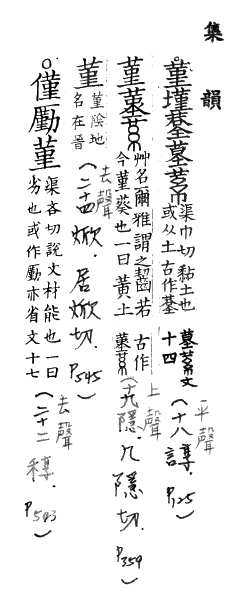 集韻
渠巾切黏土也
或从土古作
文十四
(十八諄.平聲
P.125)
艸名爾雅謂之齧苦
今堇葵也一曰黃土
古作
(十九隱.九隱切.上聲
P.359)
堇
堇陰地
名在晉
(二十四焮.居焮切.去聲
P.545)
僅廑堇
渠吝切說文材能也一曰
劣也或作廑亦省文十七
(二十二稕.去聲
P.543)